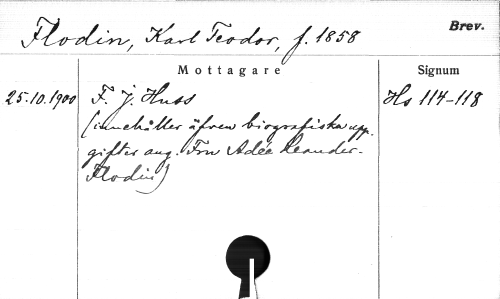 Flodin, Karl Teodor, f. 1858
Brev.
Mottagare
Signum
25.10.1900
F. J. Huss
Hs 114-118
(innehåller äfven biografiska upp-
gifter ang. Fru Adée Leander-
Flodin)